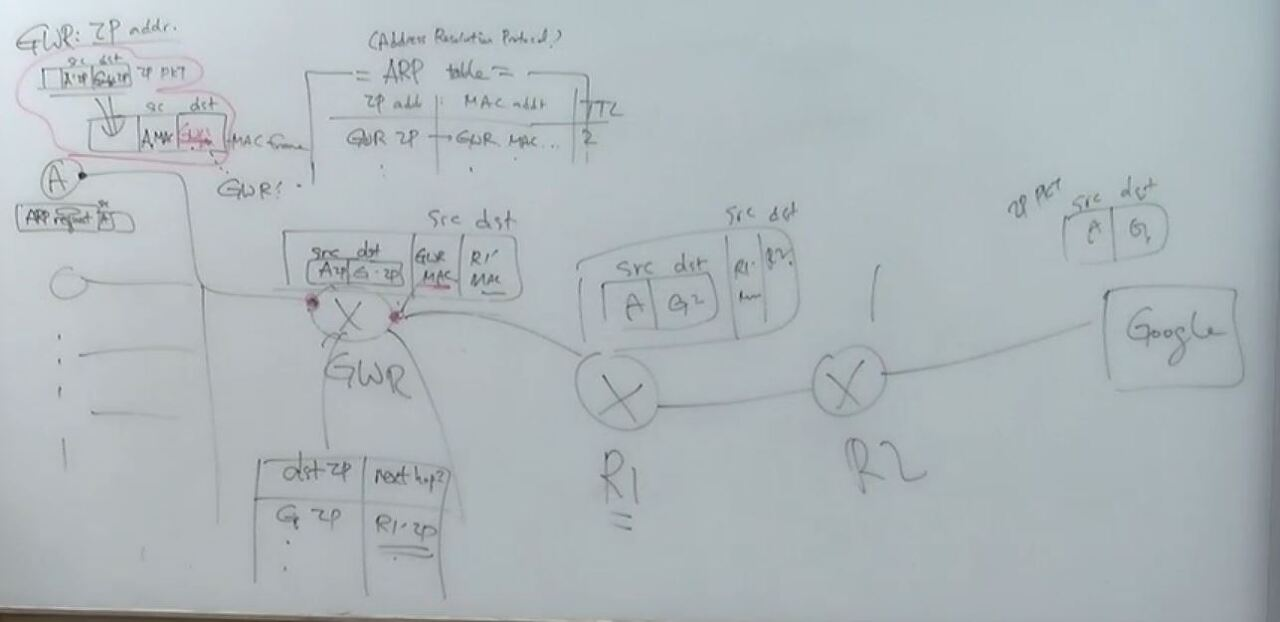 GWR: IP addr.
src dst
A IP GW IP IP PKT
src dst
A.MAC GWR MAC frame
GWR:
A
ARP request A
(Address Resolution Protocol)
= ARP table =
IP add MAC addr TTL
GWR IP → GWR MAC... 2
src dst
src dst GWR R1'
A IP G-IP MAC MAC
X
GWR
dst IP next hop
G IP R1-IP
src dst
src dst R1. R2.
A G2
X
R1
X
R2
IP PKT src dst
A G
Google